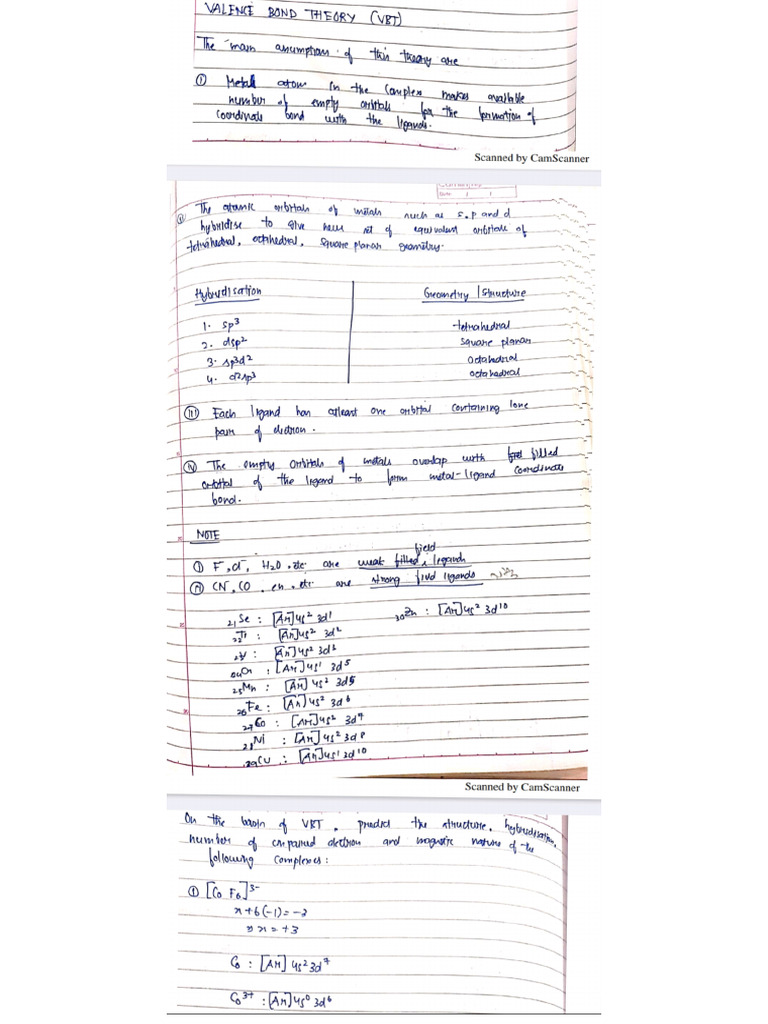 VALENCE BOND THEORY (VBT)
The main assumptions of this theory are
① Metal atom in the complex makes available
number of empty orbitals for the formation of
coordinate bond with the ligands.
Scanned by CamScanner
Date / /
⑪ The atomic orbitals of metals such as s,p and d
hybridise to give new set of equivalent orbitals of
tetrahedral, octahedral, square planar geometry.
Hybridisation Geometry / Structure
1. sp³ tetrahedral
2. dsp² square planar
3. sp³d² octahedral
4. d²sp³ octahedral
(iii) Each ligand has atleast one orbital containing lone
pair of electron.
(iv) The empty orbitals of metals overlap with filled
orbital of the ligand to form metal-ligand coordinate
bond.
NOTE
field
(i) F, Cl, H₂O, etc are weak filled, ligands
(ii) CN, CO, en, etc are strong field ligands
₂₁Sc : [Ar]4s² 3d¹ ₃₀Zn : [Ar]4s² 3d¹⁰
₂₂Ti : [Ar]4s² 3d²
₂₃V : [Ar]4s² 3d³
₂₄Cr : [Ar]4s¹ 3d⁵
₂₅Mn : [Ar]4s² 3d⁵
₂₆Fe : [Ar]4s² 3d⁶
₂₇Co : [Ar]4s² 3d⁷
₂₈Ni : [Ar]4s² 3d⁸
₂₉Cu : [Ar]4s¹ 3d¹⁰
Scanned by CamScanner
On the basis of VBT, predict the structure, hybridisation,
number of unpaired electron and magnetic nature of the
following complexes:
① [CoF₆]³⁻
x+6(-1)=-3
⇒ x = +3
Co : [Ar] 4s² 3d⁷
Co³⁺ : [Ar] 4s⁰ 3d⁶